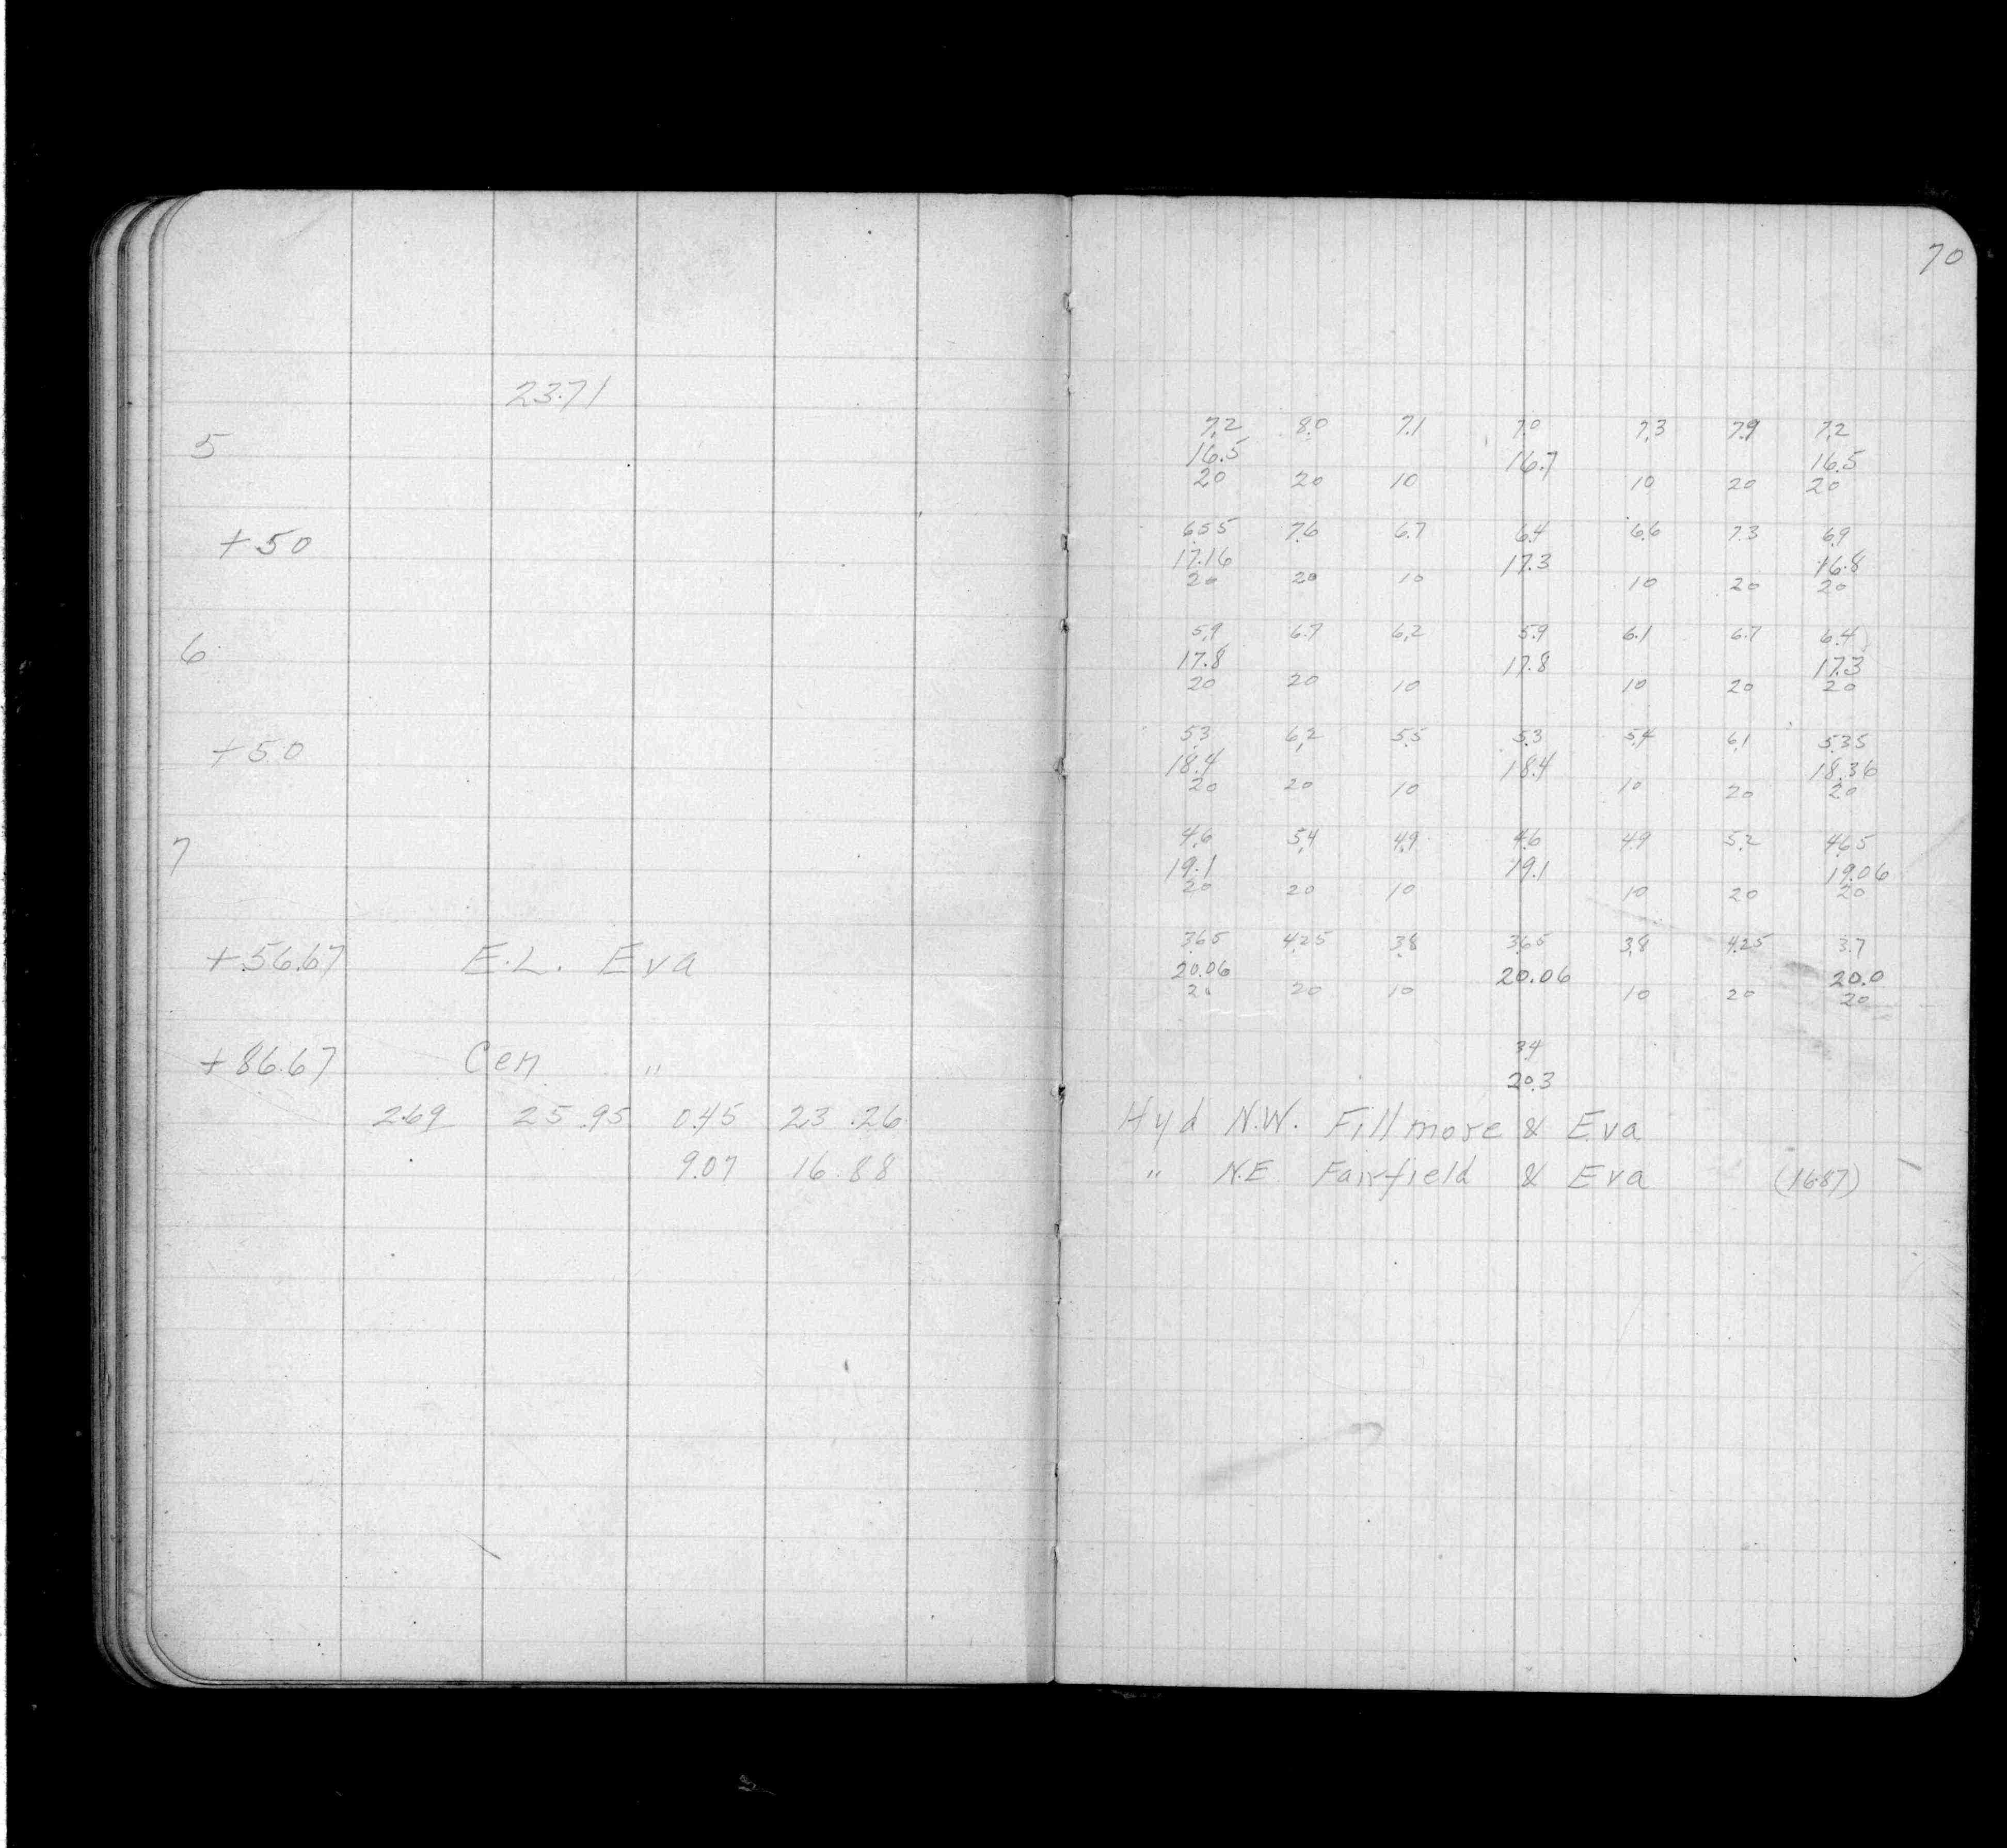 70
23.71
7.2 8.0 7.1 7.0 7.3 7.9 7.2
5 16.5 16.7 16.5
20 20 10 10 20 20
6.55 7.6 6.7 6.4 6.6 7.3 6.9
+50 17.16 17.3 16.8
20 20 10 10 20 20
5.9 6.7 6.2 5.9 6.1 6.7 6.4
6 17.8 17.8 17.3
20 20 10 10 20 20
5.3 6.2 5.5 5.3 5.4 6.1 5.35
+50 18.4 18.4 18.36
20 20 10 10 20 20
4.6 5.4 4.9 4.6 4.9 5.2 4.65
7 19.1 19.1 19.06
20 20 10 10 20 20
3.65 4.25 3.8 3.65 3.8 4.25 3.7
+56.67 E.L. Eva 20.06 20.06 20.0
20 20 10 10 20 20
3.4
+86.67 Cen " 20.3
2.69 25.95 0.45 23.26 Hyd N.W. Fillmore & Eva
9.07 16.88 " N.E Fairfield & Eva (16.87)